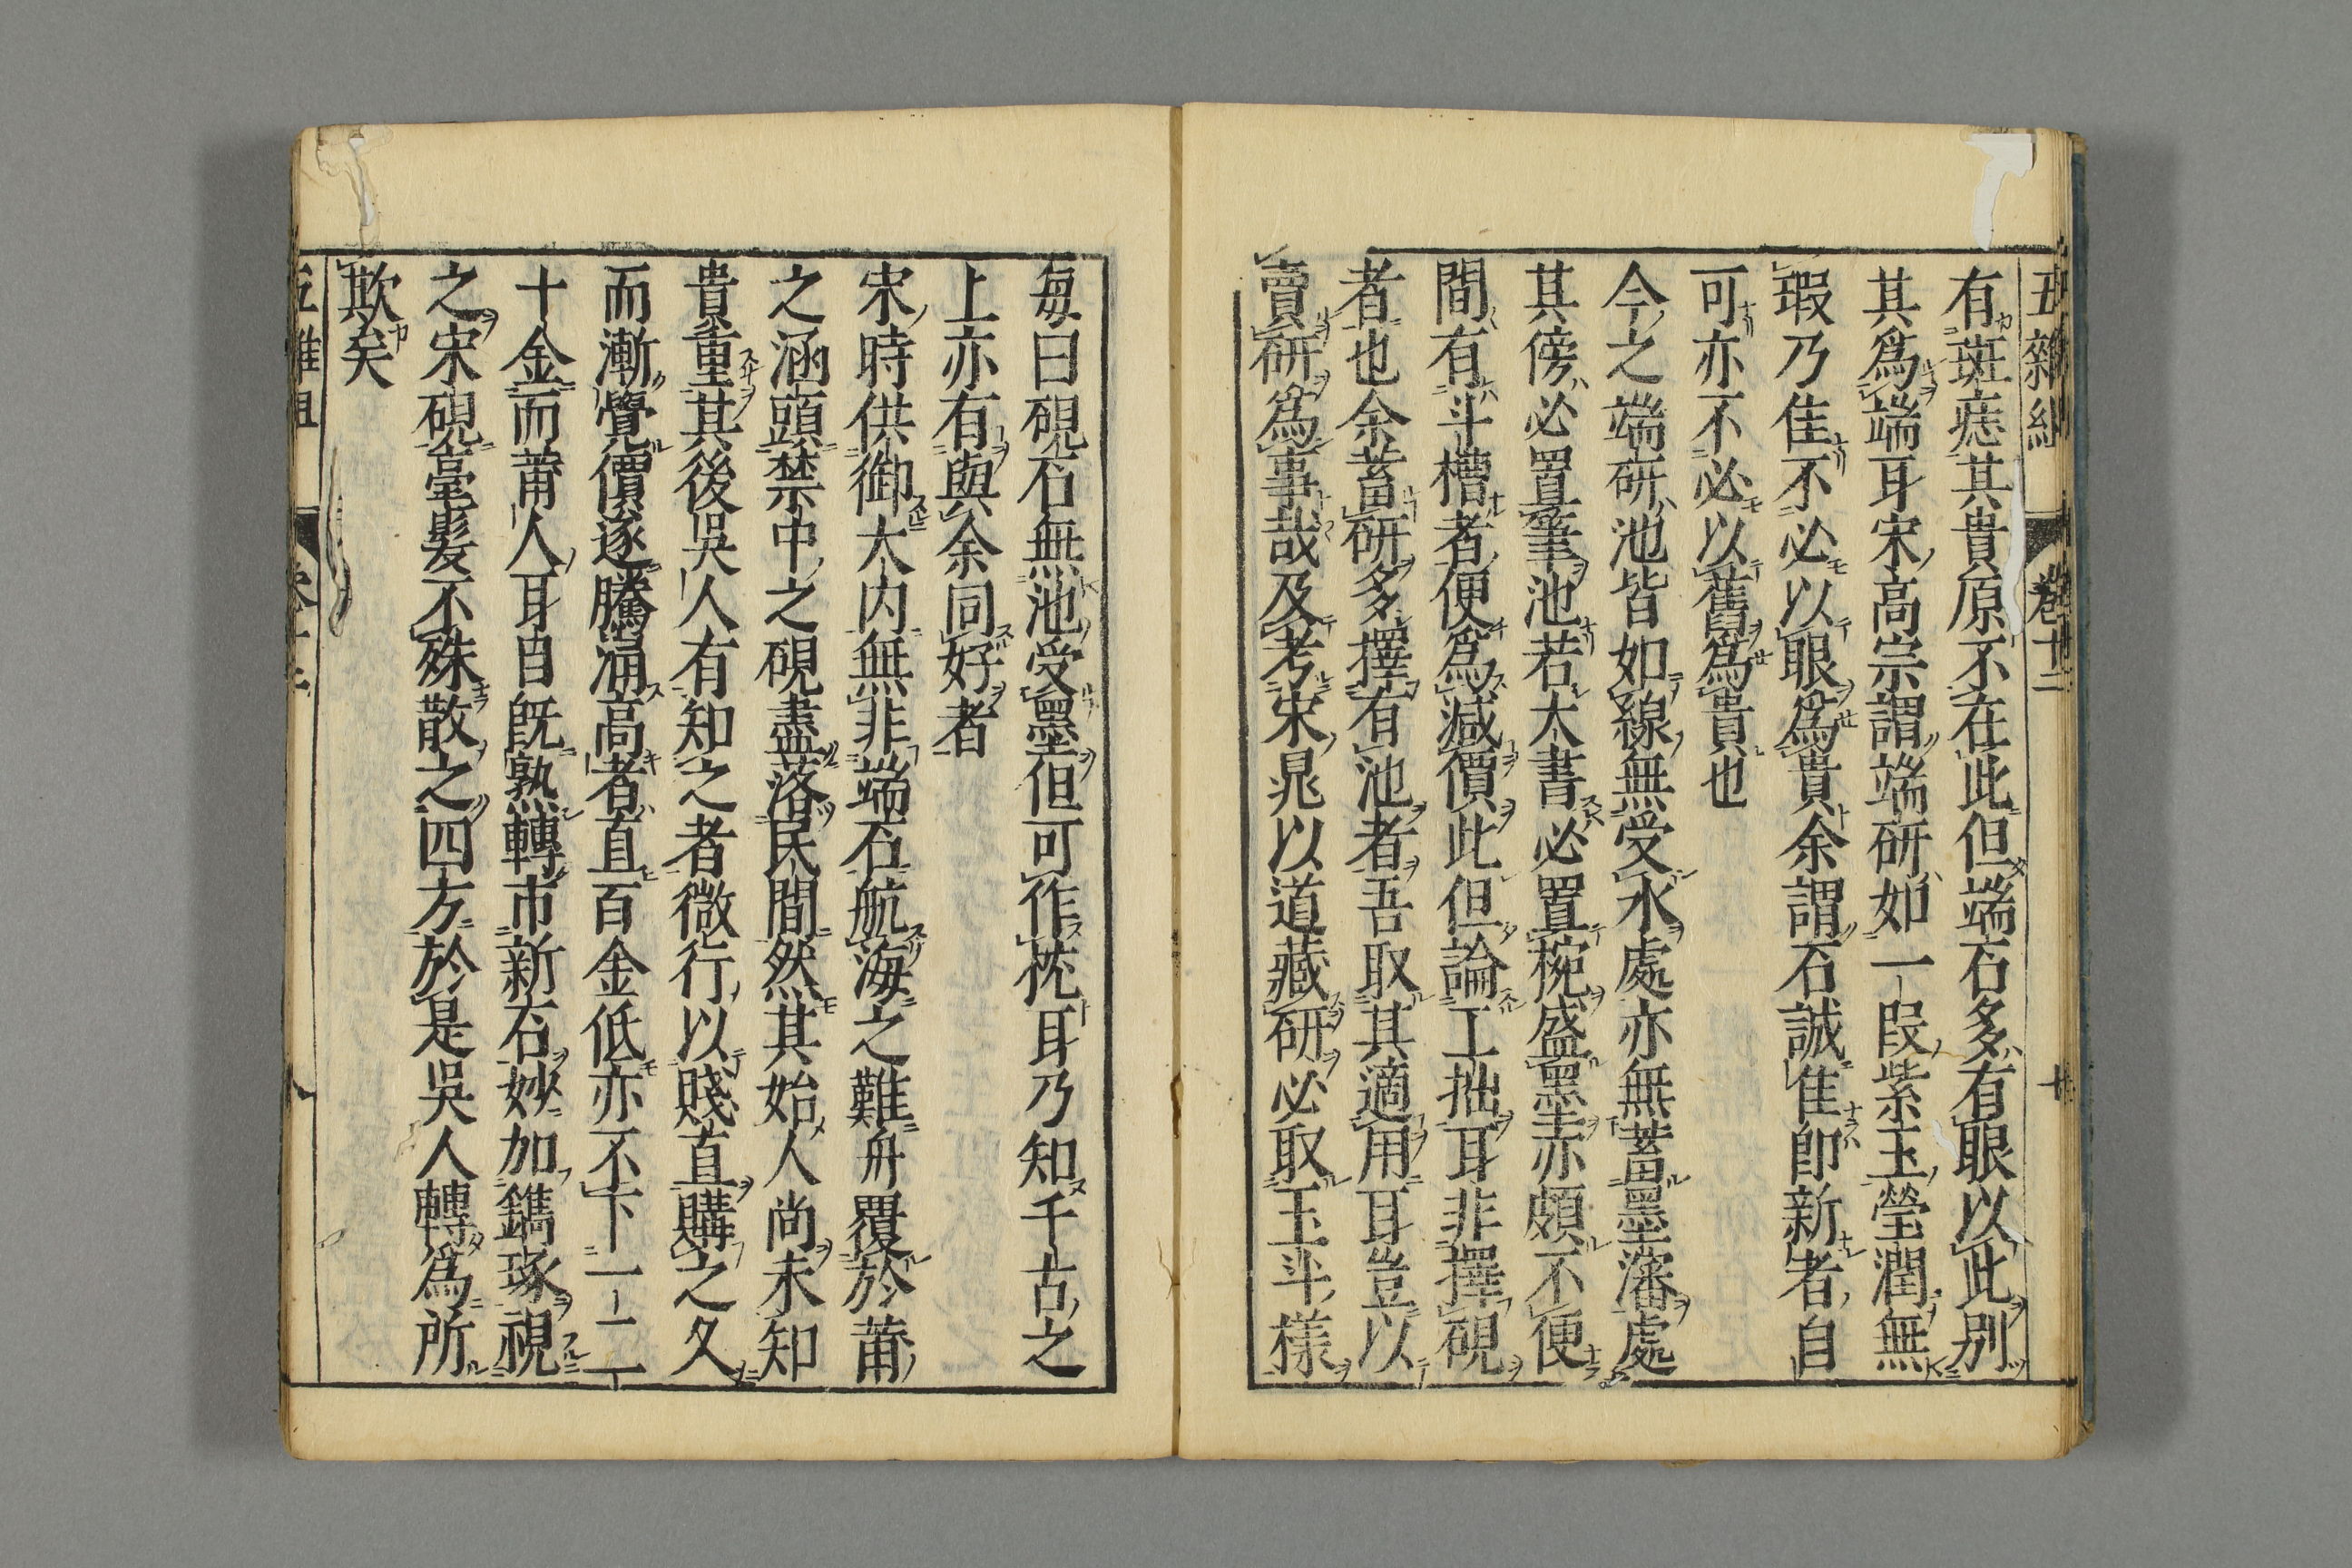 五雜組 卷十二
有斑痣其貴原不在此但端石多有眼以此別
其爲端耳宋高宗謂端研如一段紫玉瑩潤無
瑕乃佳不必以眼爲貴余謂石誠佳即新者自
可亦不必以舊爲貴也
今之端研池皆如線無受水處亦無蓄墨瀋處
其傍必置筆池若大書必置椀盛墨亦頗不便
間有斗槽者便爲減價此但論工拙耳非擇硯
者也余蓄研多擇有池者吾取其適用耳豈以
賣研爲事哉及考宋晁以道藏研必取玉斗樣
每曰硯石無池受墨但可作枕耳乃知千古之
上亦有與余同好者
宋時供御大内無非端石航海之難舟覆於莆
之涵頭禁中之硯盡落民間然其始人尚未知
貴重其後吳人有知之者微行以賤直購之久
而漸覺價遂騰涌高者直百金低亦不下一二
十金而莆人耳目既熟轉市新石妙加鐫琢視
之宋硯毫髮不殊散之四方於是吳人轉爲所
欺矣